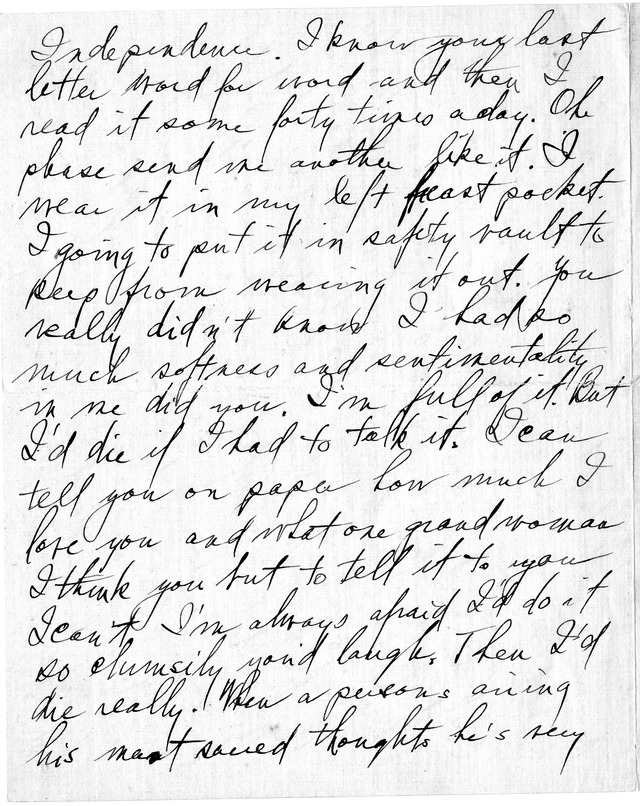 Independence. I know your last
letter word for word and then I
read it some forty times a day. Oh
please send me another like it. I
wear it in my left breast pocket.
I going to put it in safety vault to
keep from wearing it out. You
really didn't know I had so
much softness and sentimentality
in me did you. I'm full of it. But
I'd die if I had to talk it. I can
tell you on paper how much I
love you and what one grand woman
I think you but to tell it to you
I can't. I'm always afraid I'd do it
so clumsily you'd laugh. Then I'd
die really. When a persons airing
his most sacred thoughts he's very